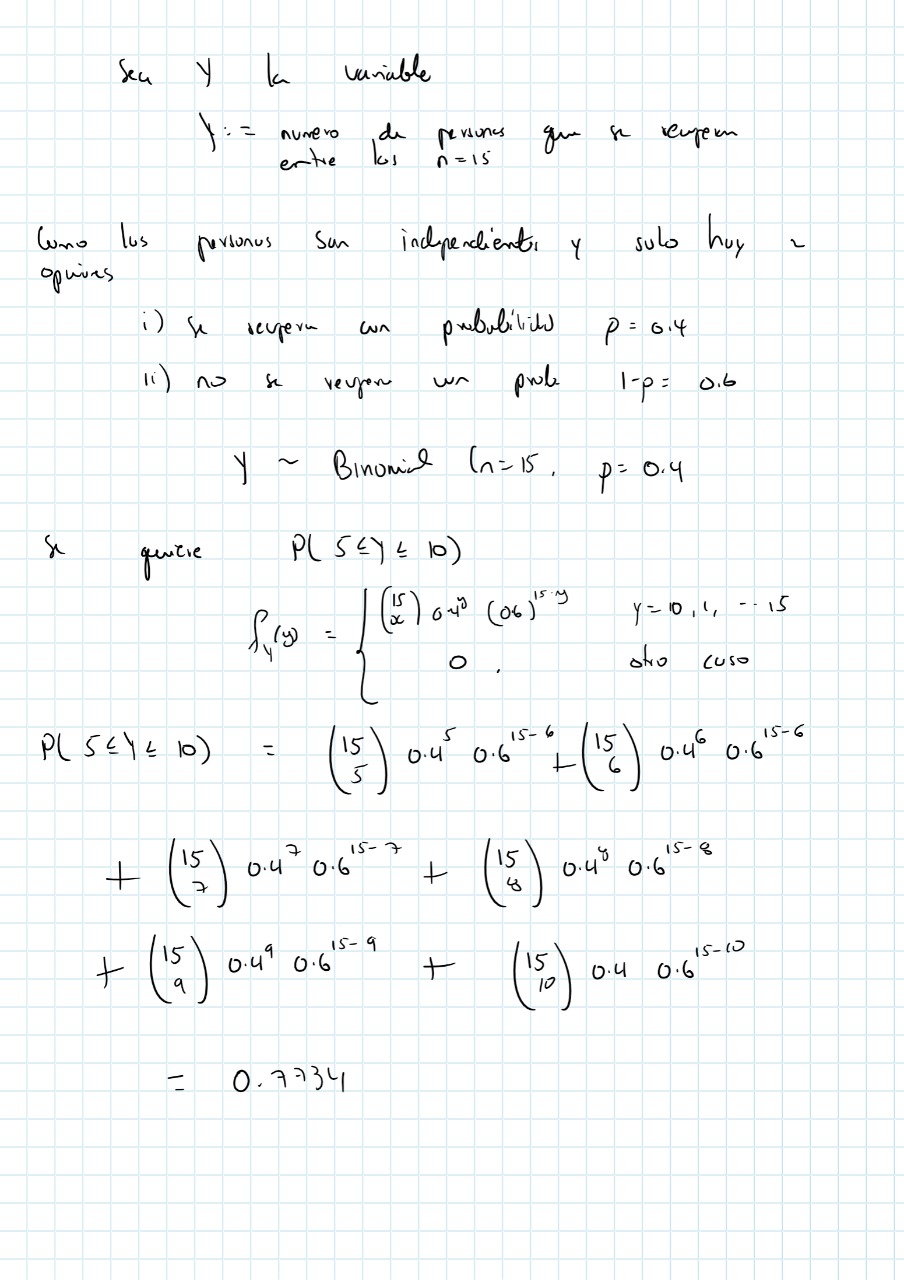 Sea Y la variable
Y := numero de personas que se recuperan
entre los n=15
Como las personas son independientes y solo hay 2
opciones
i) se recupera con probabilidad p = 0.4
ii) no se recupera con prob 1-p = 0.6
Y ~ Binomial (n=15, p=0.4
Se quiere P( 5 ≤ Y ≤ 10)
f_Y(y) = { (15 x) 0.4^y (06)^{15-y} y=10,1, -- 15
0 , otro caso
P( 5 ≤ Y ≤ 10) = (15 5) 0.4^5 0.6^{15-6} + (15 6) 0.4^6 0.6^{15-6}
+ (15 7) 0.4^7 0.6^{15-7} + (15 8) 0.4^8 0.6^{15-8}
+ (15 9) 0.4^9 0.6^{15-9} + (15 10) 0.4 0.6^{15-10}
= 0.7734